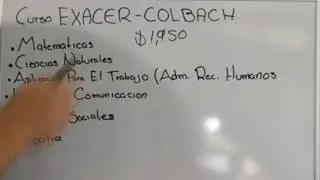 Curso EXACER-COLBACH
$1,950
• Matematicas
• Ciencias Naturales
• Aplicac Para El Trabajo (Adm. Rec. Humanos
Comunicacion
Sociales